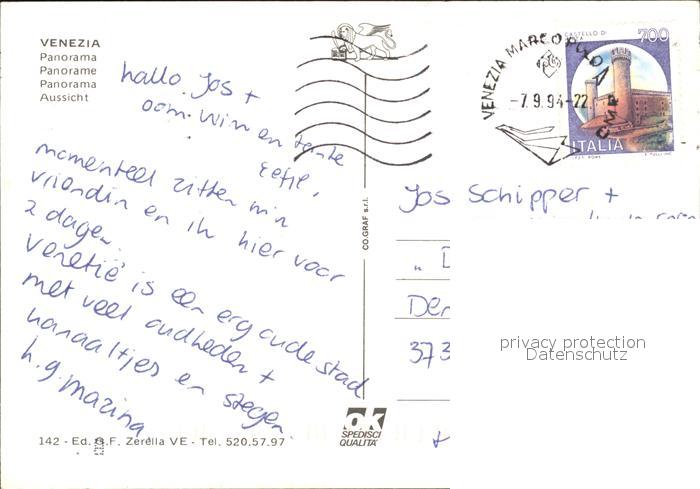 VENEZIA
Panorama
Panorame
Panorama
Aussicht
hallo Jos +
oom Wim en tante
momenteel zitten m'n
vriendin en ik hier voor
2 dagen.
Venetië is een erg oude stad
met veel oudheden +
kanaaltjes en stegen.
h.g. Marina
142 - Ed. G.F. Zerella VE - Tel. 520.57.97
CO.GRAF s.r.l.
ok
SPEDISCI
QUALITA'
VENEZIA MARCO POLO
CMP
-7.9.94-22
CASTELLO DI
700
ITALIA
Jos Schipper +
Der
373
privacy protection
Datenschutz